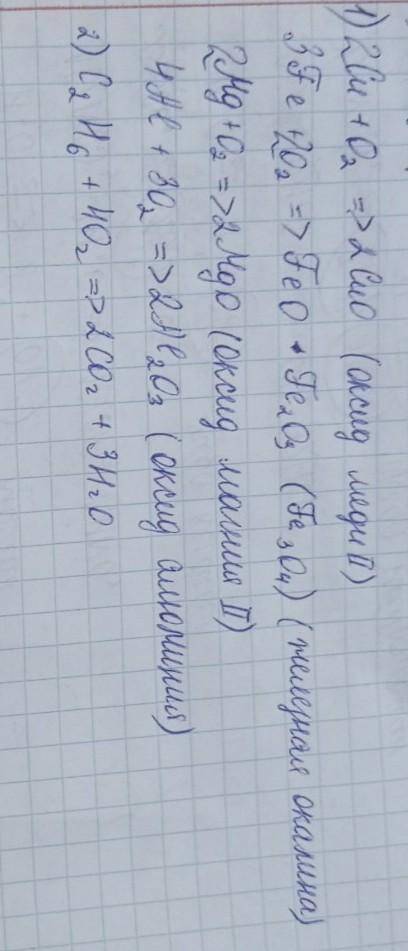 1) 2Cu + O₂ => 2CuO (оксид меди II)
3Fe + 2O₂ => FeO • Fe₂O₃ (Fe₃O₄) (железная окалина)
2Mg + O₂ => 2MgO (оксид магния II)
4Al + 3O₂ => 2Al₂O₃ (оксид алюминия)
2) C₂H₆ + 4O₂ => 2CO₂ + 3H₂O